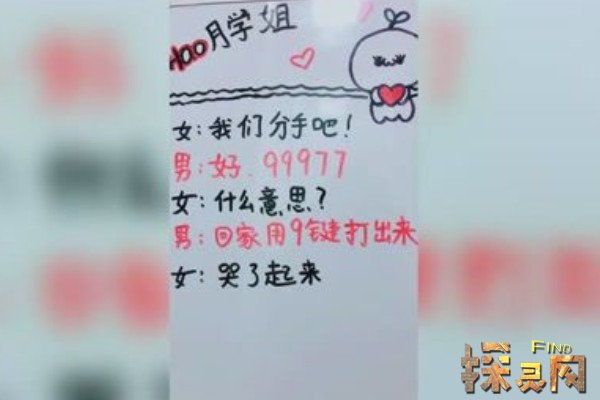 400月学姐
女:我们分手吧!
男:好.99977
女:什么意思?
男:回家用9键打出来
女:哭了起来
FIND
探灵网